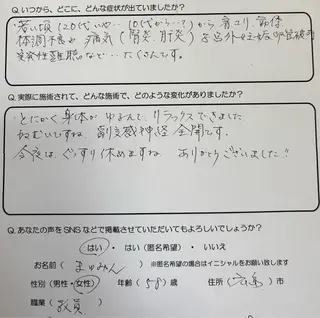 Q. いつから、どこに、どんな症状が出ていましたか?
若い頃(20代いや…10代から…?)から肩コリ、頭痛
体調不良や病気(腎炎、肝炎)子宮外妊娠、卵管破裂
突発性難聴。など…たくさんです。
Q. 実際に施術されて、どんな施術で、どのような変化がありましたか?
とにかく身体がゆるんで、リラックスできました
ねむいですね。副交感神経全開です。
今夜はぐっすり休めますね ありがとうございました!!
Q. あなたの声をSNSなどで掲載させていただいてもよろしいでしょうか?
はい ・ はい(匿名希望) ・ いいえ
お名前( まゆみん ) ※匿名希望の場合はイニシャルをお願い致します
性別(男性・女性) 年齢(58)歳 住所(広島)市
職業( 教員 )